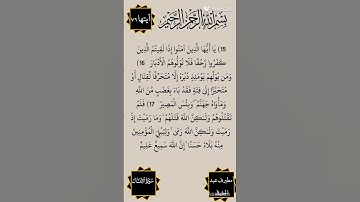 آيتها ٧٥
بسم الله الرحمن الرحيم
15) يَا أَيُّهَا الَّذِينَ آمَنُوا إِذَا لَقِيتُمُ الَّذِينَ
كَفَرُوا زَحْفًا فَلَا تُوَلُّوهُمُ الْأَدْبَارَ 16)
وَمَن يُوَلِّهِمْ يَوْمَئِذٍ دُبُرَهُ إِلَّا مُتَحَرِّفًا لِّقِتَالٍ أَوْ
مُتَحَيِّزًا إِلَىٰ فِئَةٍ فَقَدْ بَاءَ بِغَضَبٍ مِّنَ اللَّهِ
وَمَأْوَاهُ جَهَنَّمُ وَبِئْسَ الْمَصِيرُ 17) فَلَمْ
تَقْتُلُوهُمْ وَلَٰكِنَّ اللَّهَ قَتَلَهُمْ وَمَا رَمَيْتَ إِذْ
رَمَيْتَ وَلَٰكِنَّ اللَّهَ رَمَىٰ وَلِيُبْلِيَ الْمُؤْمِنِينَ
مِنْهُ بَلَاءً حَسَنًا إِنَّ اللَّهَ سَمِيعٌ عَلِيمٌ
سورة الأنفال